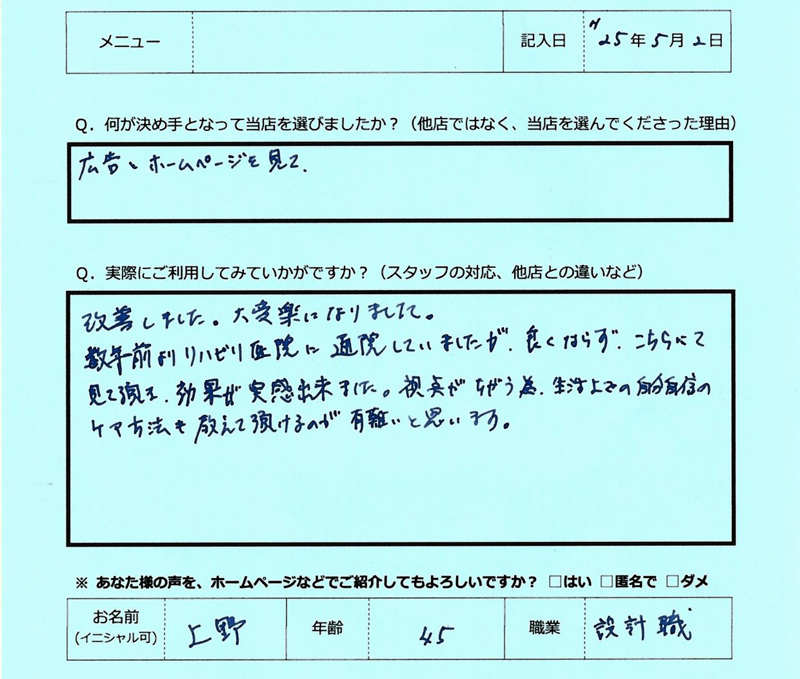 メニュー 記入日 H25年5月2日
Q. 何が決め手となって当店を選びましたか？（他店ではなく、当店を選んでくださった理由）
広告とホームページを見て.
Q. 実際にご利用してみていかがですか？（スタッフの対応、他店との違いなど）
改善しました。大変楽になりました。
数年前よりリハビリ医院に通院していましたが、良くならず、こちらにて
見て頂き、効果が実感出来ました。視点がちがう為、生活上での自分自信の
ケア方法も教えて頂けるのが有難いと思います。
※ あなた様の声を、ホームページなどでご紹介してもよろしいですか？ □はい □匿名で □ダメ
お名前 上野 年齢 45 職業 設計職
(イニシャル可)